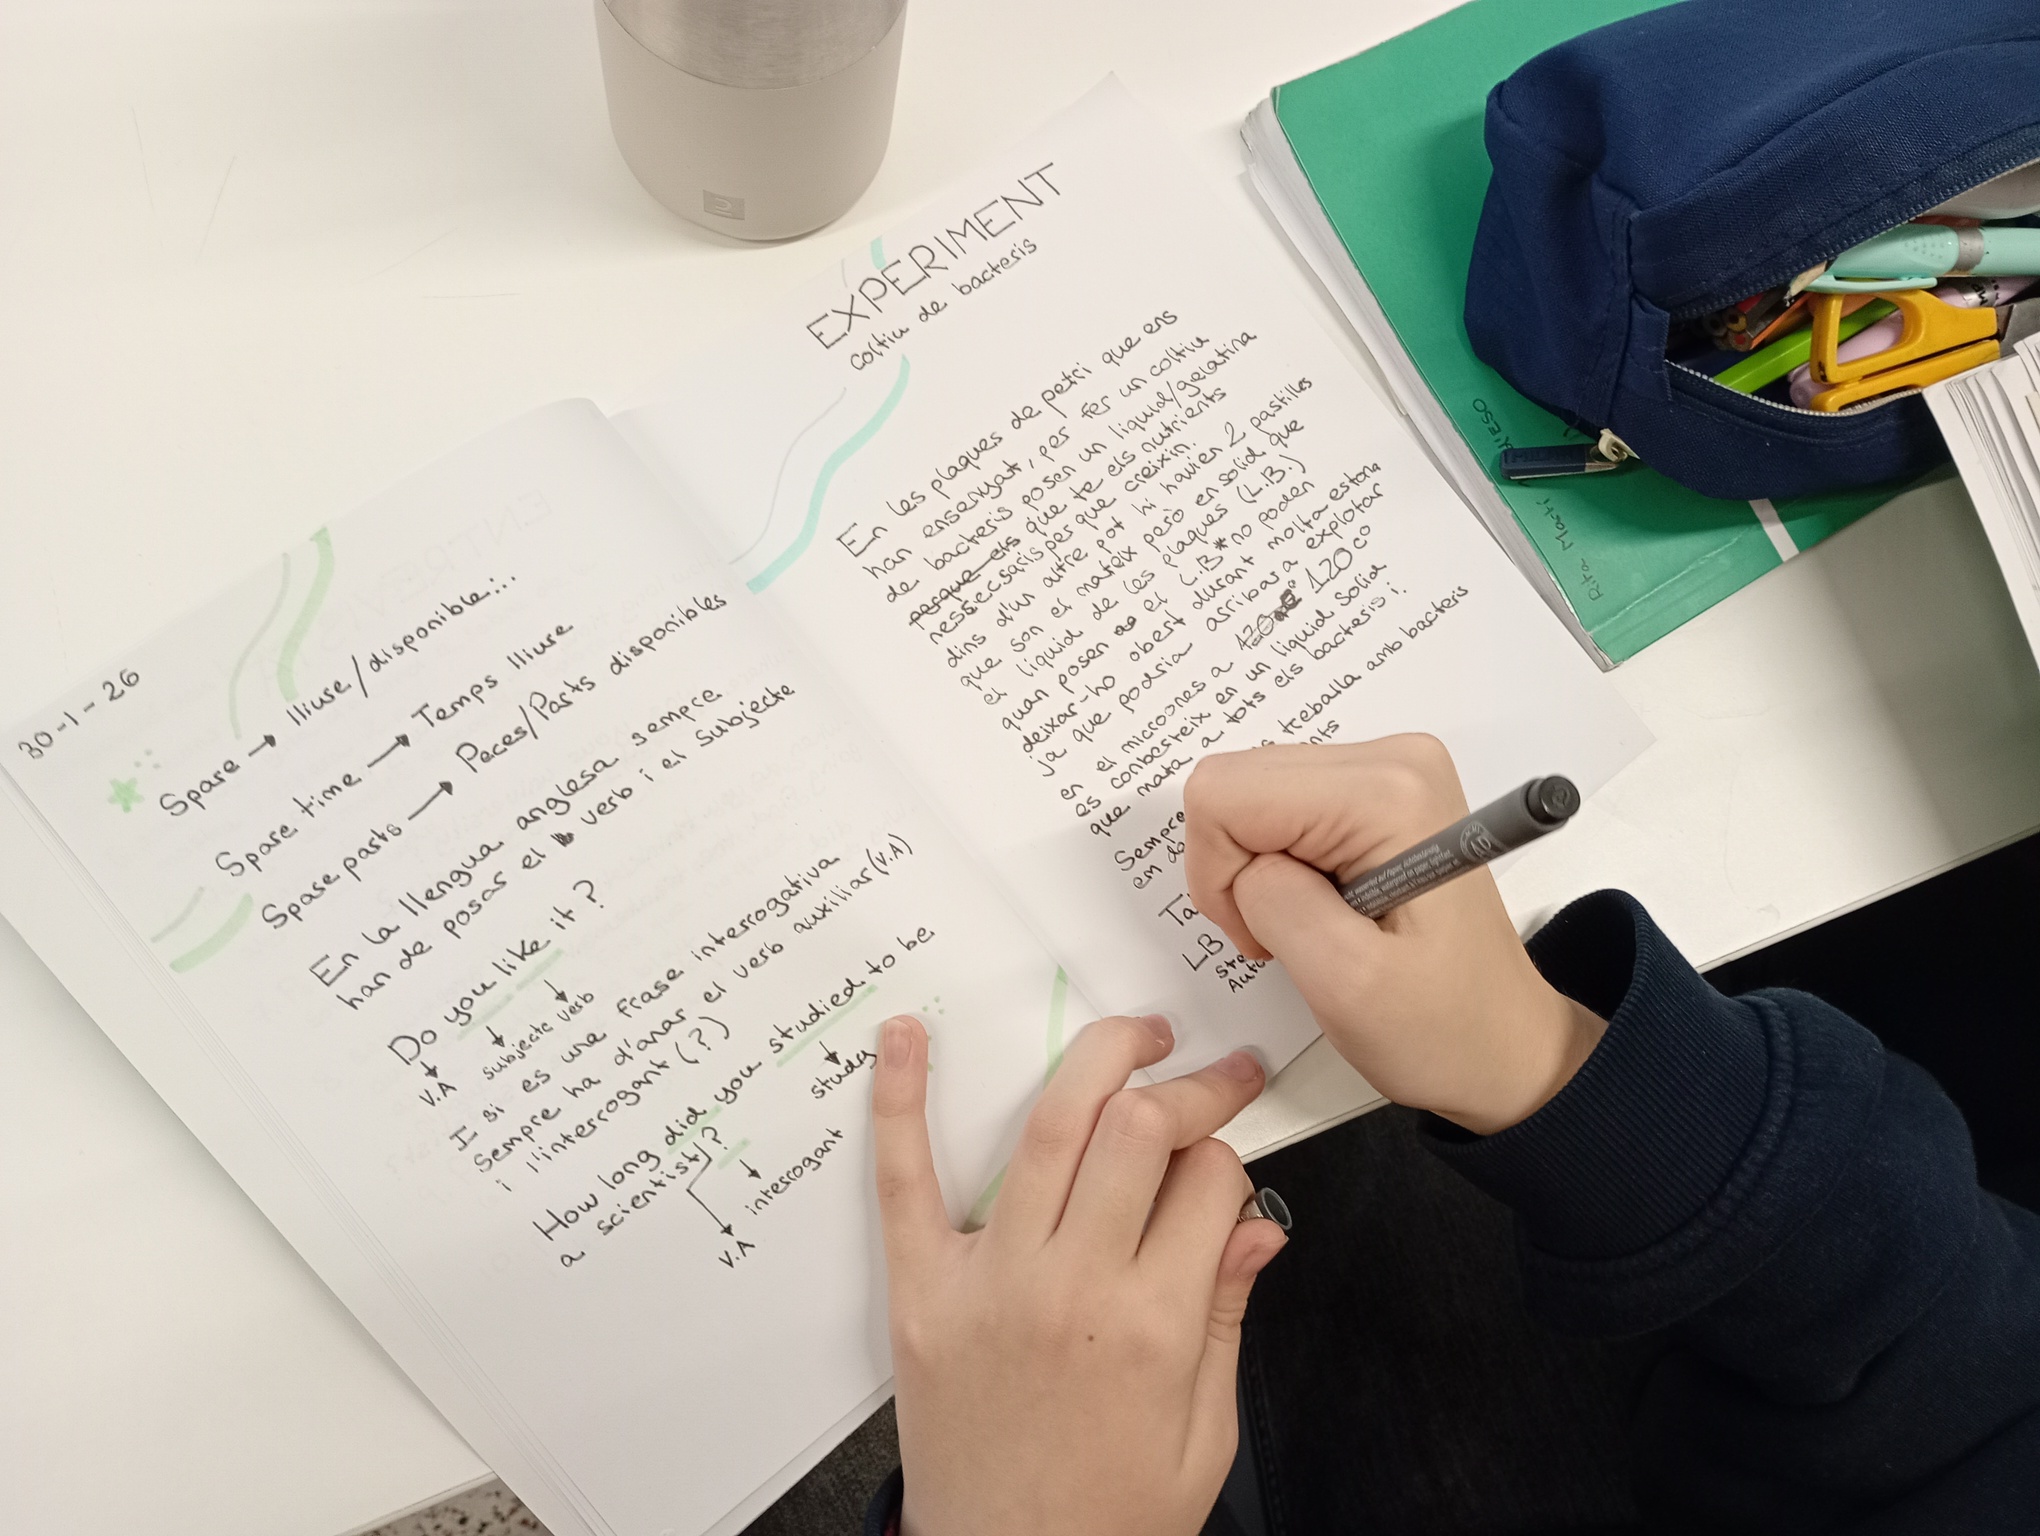 30-1-26
Spare → lliure/disponible...
Spare time → Temps lliure
Spare parts → Peces/Parts disponibles
En la llengua anglesa sempre
han de posar el verb i el subjecte
Do you like it?
V.A subjecte verb
I si es une frase interrogativa
sempre ha d'anar el verb auxiliar (V.A)
i l'interrogant (?)
How long did you studied to be
a scientist?
study
interrogant
V.A
EXPERIMENT
coltiu de bacteris
En les plaques de petri que ens
han ensenyat, per fer un coltiu
de bacteris posen un liquid/gelatina
perque els que te els nutrients
nessecsaris per que creixin.
dins d'un altre pot hi havien 2 pastilles
que son el mateix però en solid que
el liquid de les plaques (L.B.)
quan posen el L.B * no poden
deixar-ho obert durant molta estona
ja que podria arribar a explotar
en el microones a 120 120 co
es conberteix en un liquid solid
que mata a tots els bacteris i
Sempre treballa amb bacteris
en
Ta
LB
Rita Martí
AD